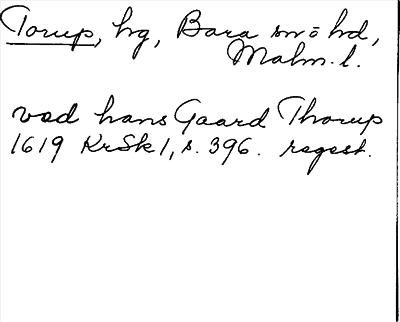 Torup, hg, Bara sn o hd,
Malm. l.
vad hans Gaard Thorup
1619 KrSk 1, s. 396. regest.